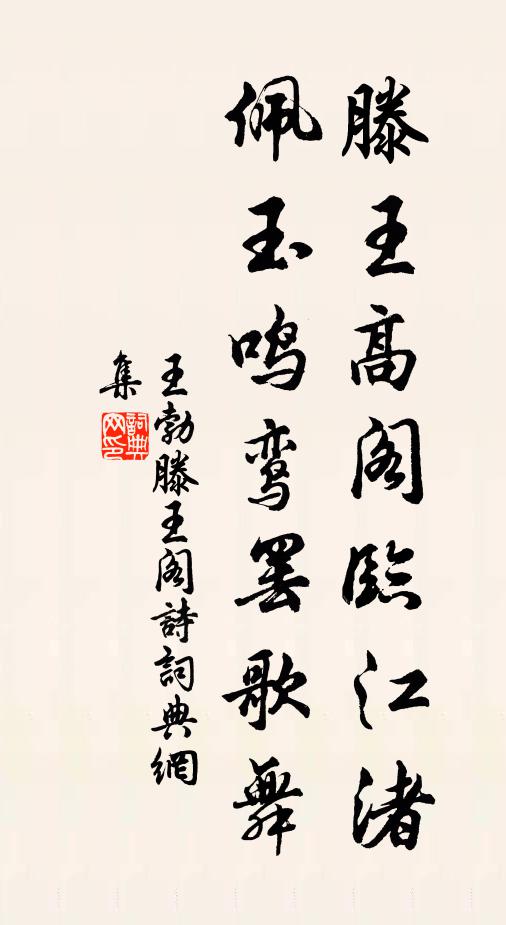 滕王高阁臨江渚
佩玉鸣鸾罢歌舞
王勃滕王阁詩詞典網
集
詞典
网印